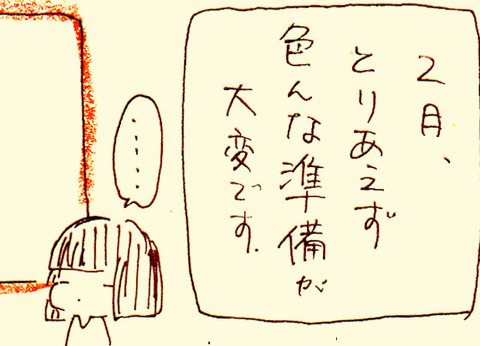 2月、
とりあえず
色んな準備が
大変です.
……